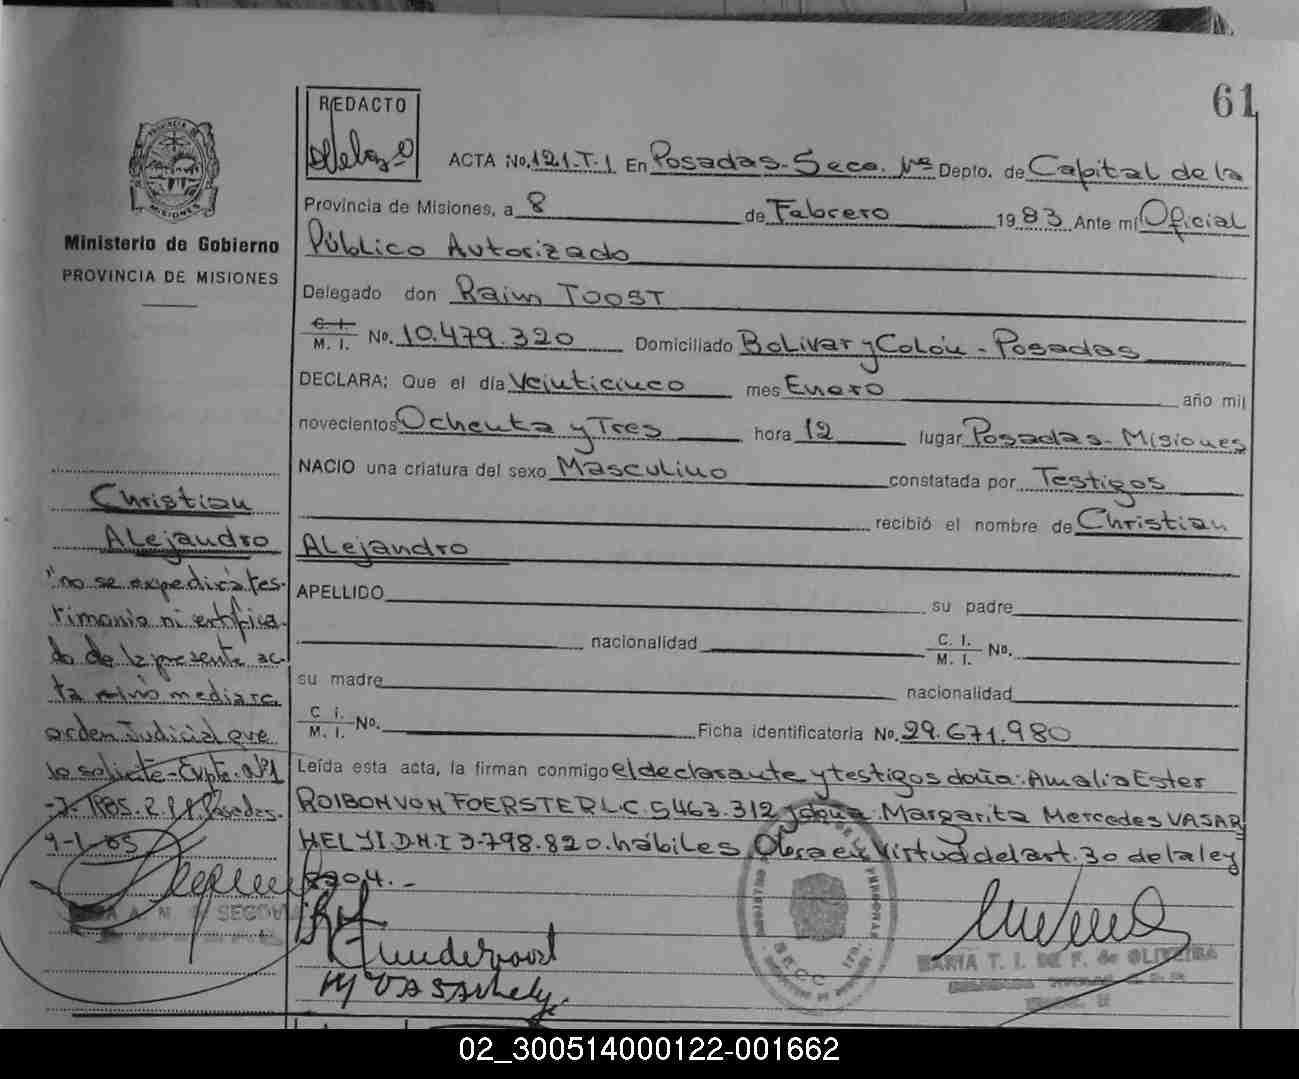 61
REDACTO
ACTA No. 121-T-1 En Posadas-Secc. 1ra Depto. de Capital de la
Provincia de Misiones, a 8 de Febrero 1983 Ante mí Oficial
Público Autorizado
Ministerio de Gobierno
PROVINCIA DE MISIONES
Delegado don Raim TOOST
C. I.
M. I. No. 10.479.320 Domiciliado Bolivar y Colón - Posadas
DECLARA: Que el día Veinticinco mes Enero año mil
novecientos Ochenta y Tres hora 12 lugar Posadas-Misiones
NACIO una criatura del sexo Masculino constatada por Testigos
recibió el nombre de Christian
Alejandro
APELLIDO su padre
nacionalidad C. I.
M. I. No.
su madre nacionalidad
C. I.
M. I. No. Ficha identificatoria No. 29.671.980
Leída esta acta, la firman conmigo el declarante y testigos doña: Amalia Ester
ROIBON VON FOERSTER L.C. 5463.312 y doña: Margarita Mercedes VASAR
HELYI D.N.I 3.798.820. hábiles Obra en Virtud del art. 30 de la ley
Christian
Alejandro
"no se expedirá tes-
timonio ni certifica-
do de la presente ac-
ta salvo mediare
orden Judicial que
lo solicite - Expte. Nº1
M VASARhelyi
MARIA T. I. DE F. de OLIVEIRA
02_300514000122-001662